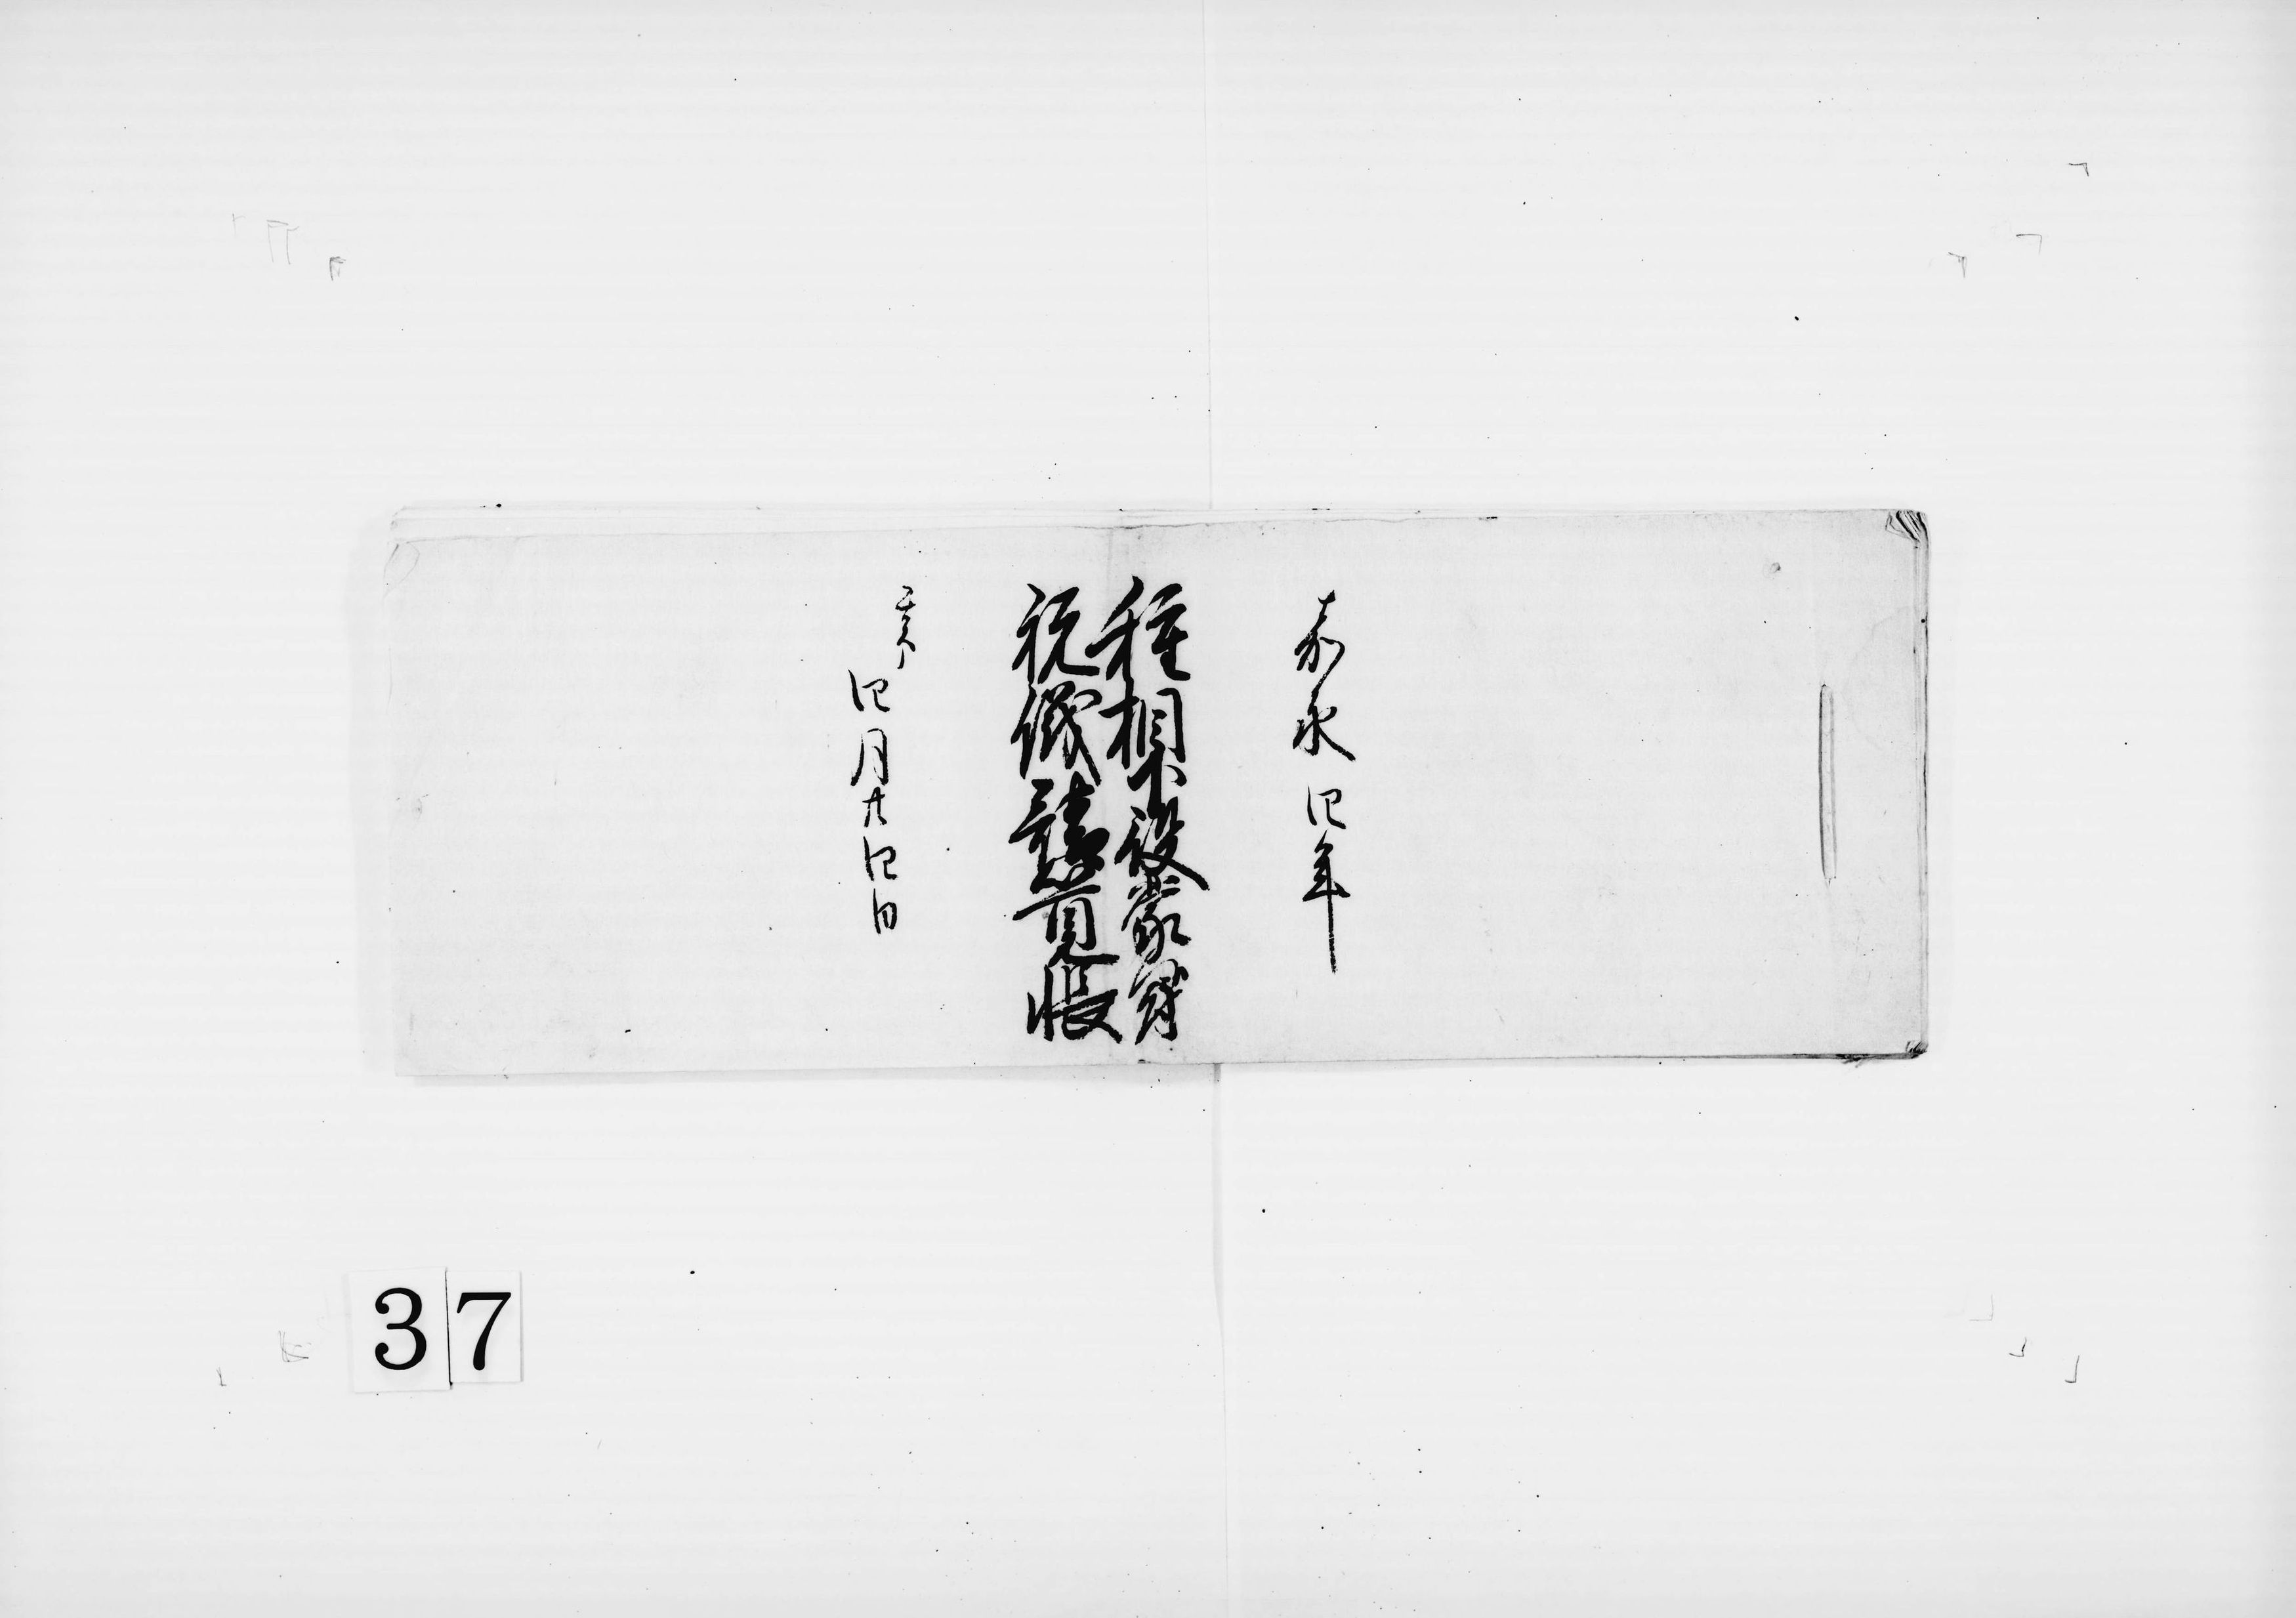 嘉永四年
種相役家督
祝儀請覚帳
亥
四月廿四日
37